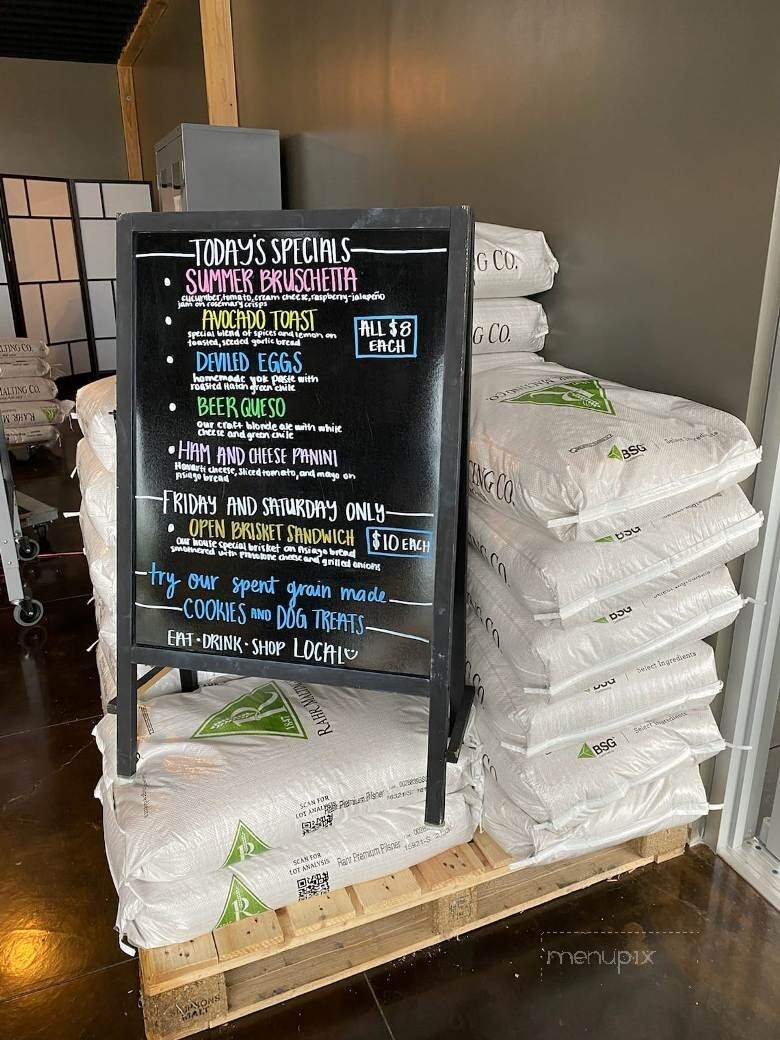 TODAY'S SPECIALS
• SUMMER BRUSCHETTA
cucumber, tomato, cream cheese, raspberry-jalapeño
jam on rosemary crisps
• AVOCADO TOAST
special blend of spices and lemon on
toasted, seeded garlic bread
ALL $8
EACH
• DEVILED EGGS
homemade yok paste with
roasted Hatch green chile
• BEER QUESO
our craft blonde ale with white
cheese and green chile
• HAM AND CHEESE PANINI
Havarti cheese, sliced tomato, and mayo on
Asiago bread
FRIDAY AND SATURDAY ONLY
• OPEN BRISKET SANDWICH
our house special brisket on Asiago bread
smothered with provolone cheese and grilled onions
$10 EACH
try our spent grain made
COOKIES AND DOG TREATS
EAT • DRINK • SHOP LOCAL
G CO.
G CO.
BSG
ING CO.
BSG
BSG
BSG
Select Ingredients
BSG
Select Ingredients
LTING CO.
ALTING CO.
RAHR M
R
1847
RAHR MALTING
SCAN FOR
LOT ANALYSIS
Rahr Premium Pilsner
R
SCAN FOR
LOT ANALYSIS
Rahr Premium Pilsner
R
SIMPSONS
MALT
menupix